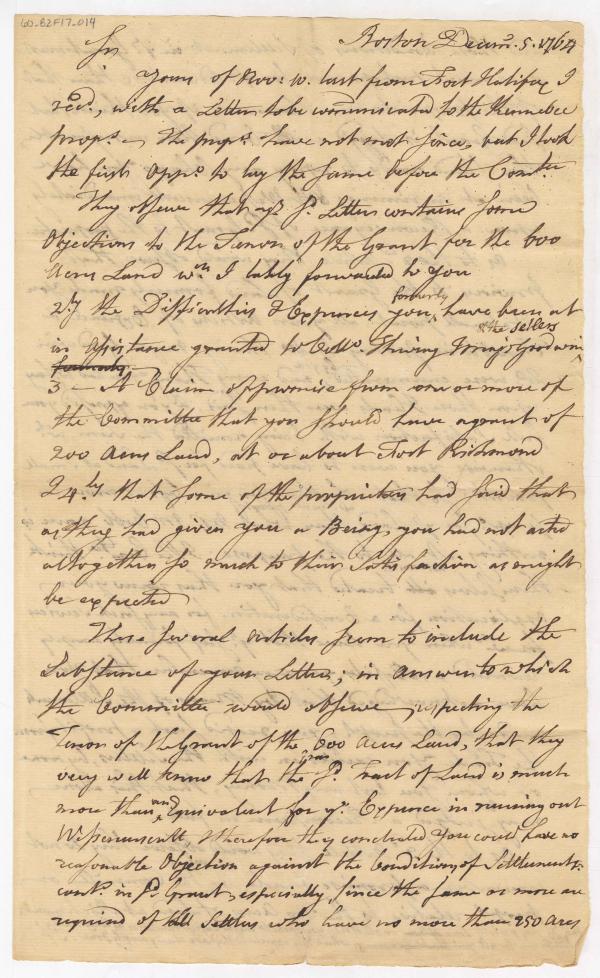 60-B2F17-014
Boston Decemr. 5. 1764
Sr
Yours of Nov: 10. last from Fort Halifax I
recd., with a Letter to be communicated to the Kennebec
props. — The props. have not met since, but I took
the first oppo. to lay the same before the Comtee.
They observe that yr. sd. Letter contains some
Objections to the Tenor of the Grant for the 600
Acres Land wch. I lately forwarded to you
2dly the Difficulties & Expences you formerly have been at
in assistance granted to Collo. Thwing & the setlers
3 — A Claim of promise from one or more of
the Committee that you should have a grant of
200 Acres Land, at or about Fort Richmond
& 4.ly that some of the proprietors had said that
as they had given you a Being, you had not acted
altogether so much to their Satisfaction as might
be expected
These several articles seem to include the
Substance of your Letter; in answer to which
the Committee would observe, respecting the
Tenor of the Grant of the 600 Acres Land, that they
very well know that the sd. Tract of Land is much
more than an Equivalent for yr. Expence in running out
therefore they concluded you could have no
reasonable Objection against the Conditions of Settlement
contd. in sd. Grant, especially, since the same or more are
required of all Settlers who have no more than 250 Acres